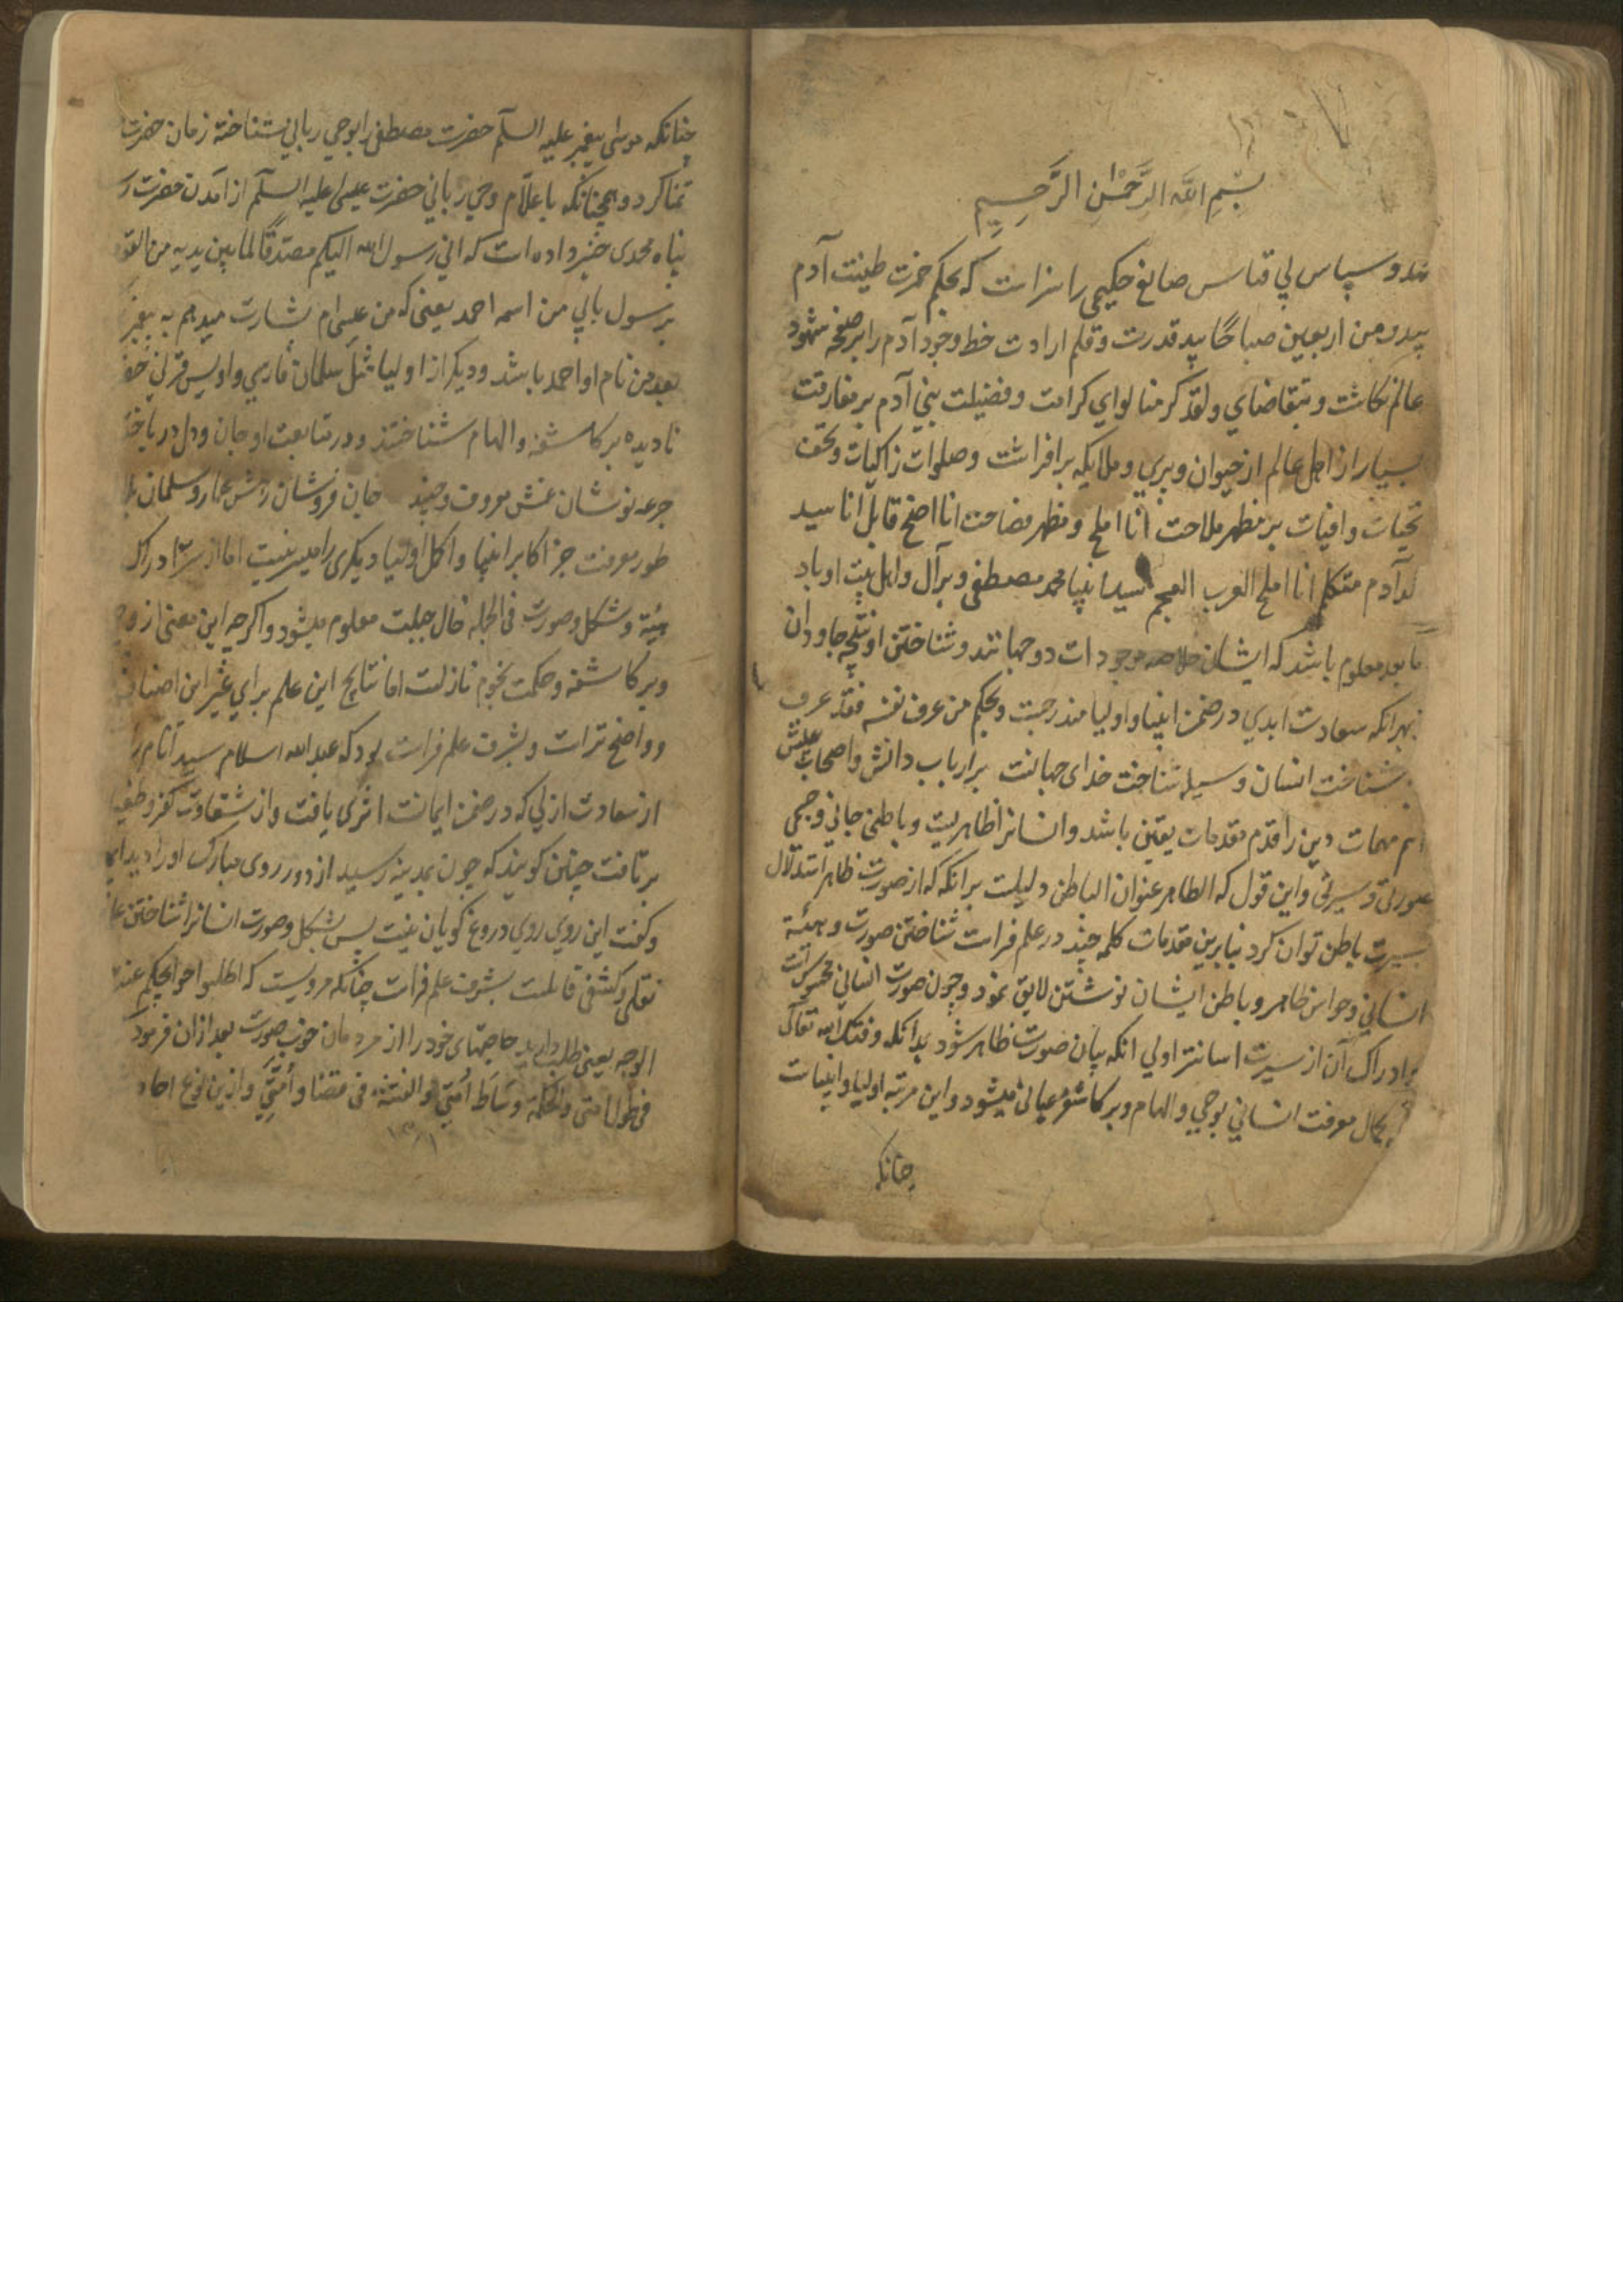 بِسْمِ اللّٰهِ الرَّحْمٰنِ الرَّحِیمِ
حمد و سپاس بی قیاس صانع حکیمی را سزاست که بحکم خمرت طینت آدم
بیدی من اربعین صباحا بید قدرت و قلم ارادت خط وجود آدم را بر صفحه شهود
عالم نکاشت و بتقاضای ولقد کرمنا لوای کرامت و فضیلت بنی آدم بر مفارقت
بسیار از اهل عالم از حیوان و پری و ملایکه برافراشت و صلوات زاکیات و تحف
تحیات وافیات بر مظهر ملاحت انا املح و مظهر فصاحت انا افصح قابل انا سید
ولد آدم متکلم انا املح العرب العجم سید انبیا محمد مصطفی و بر آل و اهل بیت او باد
اما بعد معلوم باشد که ایشان خلاصه موجودات دو جهانند و شناختن او نتیجه جاودان
بهرانکه سعادت ابدی در ضمن انبیا و اولیا مندرجست و بحکم من عرف نفسه فقد عرف
شناخت انسان وسیله شناخت خدای جهانست بر ارباب دانش و اصحاب بینش
اهم مهمات دین و اقدم مقدمات یقین باشد و انسانرا ظاهریست و باطنی جانی و جسمی
صورتی و سیرتی و این قول که الظاهر عنوان الباطن دلیلست برانکه که از صورت ظاهر استدلال
بسیرت باطن توان کرد بنا برین مقدمات کلمه چند در علم فراست شناختن صورت و هیئة
انسانی و حواس ظاهر و باطن ایشان نوشتن لایق نمود و چون صورت انسانی محسوس است
و ادراک آن از سیرت اسانتر اولی انکه بیان صورت ظاهر شود بدانکه وفقک الله تعالی
که کمال معرفت انسانی بوحی و الهام و بر کاشفه عیانی میشود و این مرتبه اولیا و انبیاست
چنانکه
چنانکه موسی پیغمبر علیه السلم حضرت مصطفی را بوحی ربانی شناخته زمان حضرت
تمنا کرد و همچنانکه باعلام وحی ربانی حضرت عیسی علیه السلم از آمدن حضرت
پناه محمدی خبر داده است که انی رسول الله الیکم مصدقا لما بین یدیه من التو
برسول یاتی من اسمه احمد یعنی که من عیسی ام بشارت میدهم به پیغمبر
بعد من نام او احمد باشد و دیکر از اولیا مثل سلمان فارسی و اویس قرنی
نادیده بر کاشفه و الهام شناختند و در متابعت او جان و دل در باختند
جرعه نوشان غمش معروف و جنید جان فروشان رهش عمار و سلمان
طور معرفت جز اکابر انبیا و اکمل اولیا دیکری را میسر نیست اما از ادراک
هیئة و شکل و صورت فی الجمله حال جبلت معلوم میشود و اکرچه این معنی از
و بر کاشفه و حکمت نجوم نازلست اما نتایج این علم برای غیر این اصناف
و واضح تر است و بشرف علم فراست بود که عبد الله اسلام سید انام را
از سعادت ازلی که در ضمن ایمانست اثری یافت و از شقاوت کفر و
برتافت چنین کویند که چون بمدینه رسید از دور روی مبارک او را دید
و کفت این روی روی دروغ کویان نیست پس شکل و صورت انسانرا شناختن
کشفی قابلست بشرف علم فراست چنانکه مرویست که اطلبوا حوایجکم عند
الوجه یعنی طلب دارید حاجتهای خود را از مردمان خوب صورت بعد ازان فرمود
فی طول امتی والحکمة وساط اُمتی والفتنة فی قصار اُمتی وازین نوع احاد